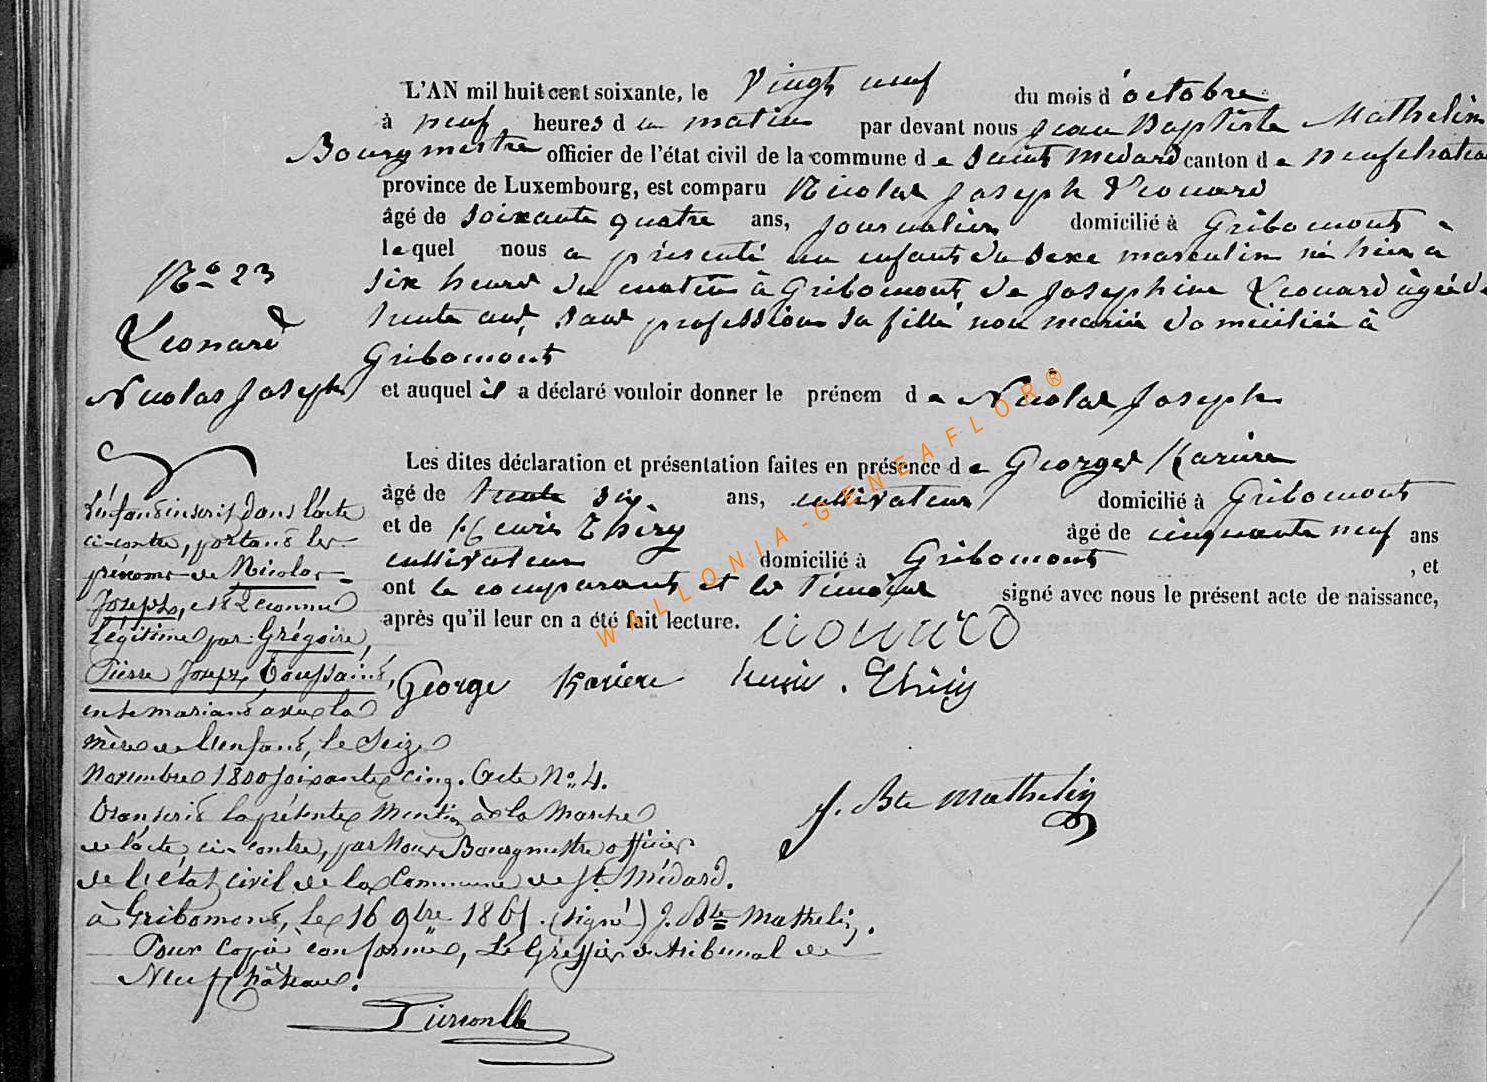 L'AN mil huit cent soixante, le Vingt neuf du mois d'octobre
à neuf heures du matin par devant nous Jean Baptiste Mathelin
Bourgmestre officier de l'état civil de la commune de Saint Médard canton de Neufchateau
province de Luxembourg, est comparu Nicolas Joseph Léonard
âgé de soixante quatre ans, journalier domicilié à Gribomont
lequel nous a présenté un enfant du sexe masculin né hier à
six heures du matin à Gribomont, de Joséphine Léonard âgée de
trente ans, sans profession sa fille non mariée domiciliée à
Gribomont
et auquel il a déclaré vouloir donner le prénom de Nicolas Joseph
Les dites déclaration et présentation faites en présence de Georges Karière
âgé de trente six ans, cultivateur domicilié à Gribomont
et de Henri Thiry âgé de cinquante neuf ans
cultivateur domicilié à Gribomont, et
ont le comparant et les témoins signé avec nous le présent acte de naissance,
après qu'il leur en a été fait lecture. Léonard
George Karière henri. Thiriy
J. Bte Mathelin
No 23
Léonard
Nicolas Joseph
L'enfant inscrit dans l'acte
ci-contre, portant les
prénoms de Nicolas
Joseph, a été reconnu
légitime par Grégoire,
Pierre Joseph Toussaint,
en se mariant avec la
mère de l'enfant, le Seize
Novembre 1800 soixante cinq. Acte No 4.
Transcrit la présente Mention à la Marche
de l'acte ci-contre, par Nous Bourgmestre officier
de l'état civil de la Commune de St Médard.
à Gribomont, le 16 9bre 1865. (signé) J. Bte Mathelin.
Pour Copie conforme, Le Greffier du tribunal de
Neufchâteau.
WALLONIA-GENEAFLOR®